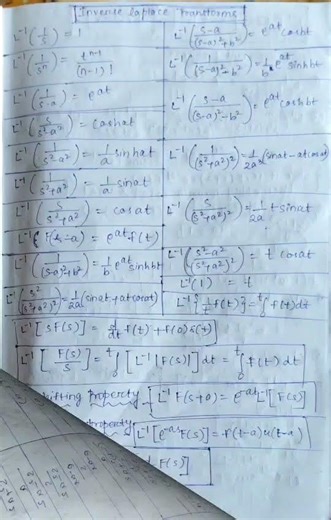 Inverse laplace Transforms
L⁻¹(1/s) = 1
L⁻¹(1/sⁿ) = tⁿ⁻¹/(n-1)!
L⁻¹(1/s-a) = e^at
L⁻¹(s/s²-a²) = coshat
L⁻¹(1/s²-a²) = 1/a sinhat
L⁻¹(1/s²+a²) = 1/a sinat
L⁻¹(s/s²+a²) = cosat
L⁻¹{F(s-a) = e^at f(t)
L⁻¹(1/(s-a)²+b²) = 1/b e^at sinhbt
L⁻¹(s²/(s²+a²)²) = 1/2a (sinat+atcosat)
L⁻¹(s-a/(s-a)²+b²) = e^at cosbt
L⁻¹(1/(s-a)²-b²) = 1/b e^at sinhbt
L⁻¹(s-a/(s-a)²-b²) = e^at coshbt
L⁻¹(1/(s²+a²)²) = 1/2a³ (sinat-atcosat)
L⁻¹(s/(s²+a²)²) = 1/2a tsinat
L⁻¹(s²-a²/(s²+a²)²) = t cosat
L⁻¹(1) =
= ∫ f(t)dt
L⁻¹[sF(s)] = d/dt f(t) + f(0)
L⁻¹[F(s)/s] = ᵗ∫₀ [L⁻¹[F(s)]] dt = ᵗ∫₀ f(t) dt
property L⁻¹F(s+a) = e^-at L⁻¹[F(s)]
property L⁻¹[e^-as F(s)] = f(t-a)u(t-a)
F(s)]